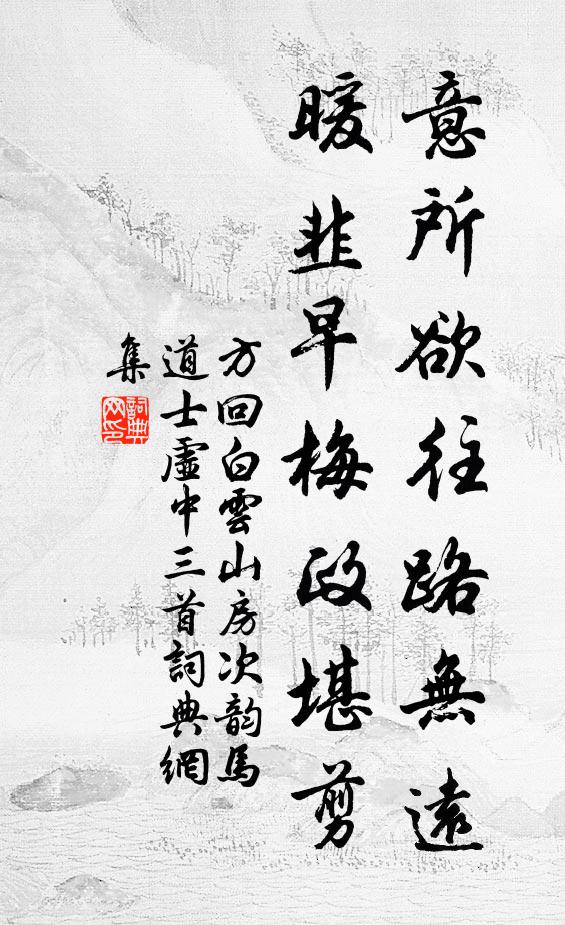 意所欲往路無遠
暖韭早梅政堪剪
方回白雲山房次韵馬
道士虛中三首詞典網
集
詞典网印